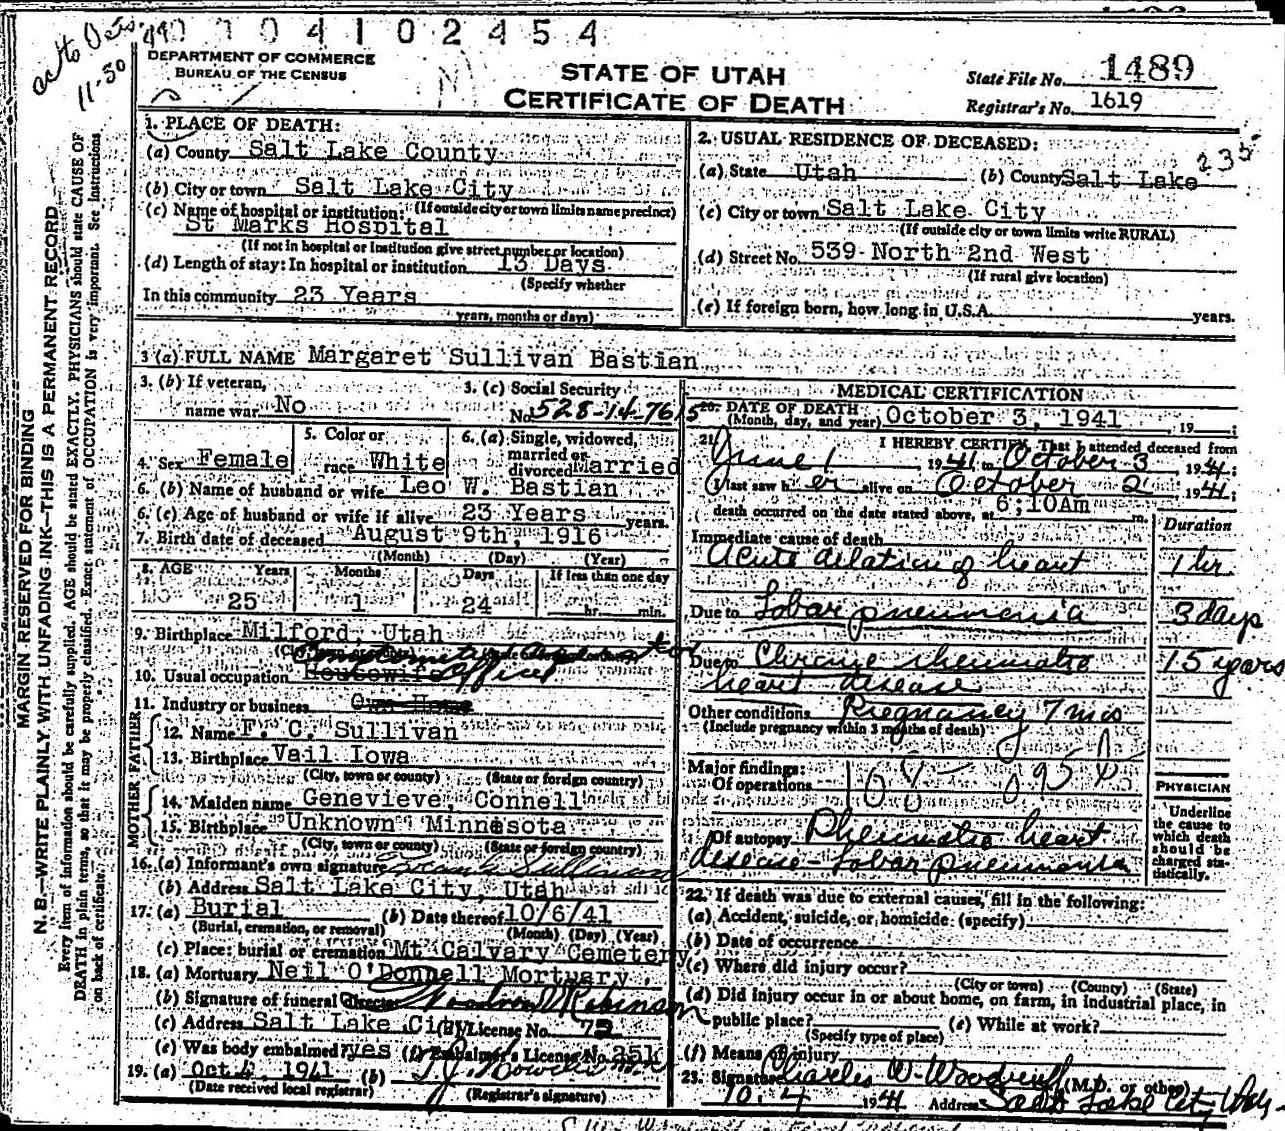 0 4 1 0 2 4 5 4
11-30
DEPARTMENT OF COMMERCE
BUREAU OF THE CENSUS
STATE OF UTAH
CERTIFICATE OF DEATH
State File No. 1489
Registrar's No. 1619
MARGIN RESERVED FOR BINDING
N. B.—WRITE PLAINLY WITH UNFADING INK—THIS IS A PERMANENT RECORD
Every item of information should be carefully supplied. AGE should be stated EXACTLY. PHYSICIANS should state CAUSE OF
DEATH in plain terms, so that it may be properly classified. Exact statement of OCCUPATION is very important. See instructions
on back of certificate.
1. PLACE OF DEATH:
(a) County Salt Lake County
(b) City or town Salt Lake City
(If outside city or town limits name precinct)
(c) Name of hospital or institution:
St Marks Hospital
(If not in hospital or institution give street number or location)
(d) Length of stay: In hospital or institution 13 Days
(Specify whether
In this community 23 Years
years, months or days)
2. USUAL RESIDENCE OF DECEASED:
235
(a) State Utah (b) County Salt Lake
(c) City or town Salt Lake City
(If outside city or town limits write RURAL)
(d) Street No. 539 North 2nd West
(If rural give location)
(e) If foreign born, how long in U.S.A. years.
3 (a) FULL NAME Margaret Sullivan Bastian
3. (b) If veteran, name war No
3. (c) Social Security No. 528-14-7615
4. Sex Female
5. Color or race White
6. (a) Single, widowed, married or divorced Married
6. (b) Name of husband or wife Leo W. Bastian
6. (c) Age of husband or wife if alive 23 Years years.
7. Birth date of deceased August 9th, 1916
(Month) (Day) (Year)
8. AGE Years Months Days If less than one day
25 1 24 hr. min.
9. Birthplace Milford, Utah
10. Usual occupation Housewife Office
11. Industry or business Own Home
FATHER
12. Name F. C. Sullivan
13. Birthplace Vail Iowa
(City, town or county) (State or foreign country)
MOTHER
14. Maiden name Genevieve, Connell
15. Birthplace Unknown Minnesota
(City, town or county) (State or foreign country)
16. (a) Informant's own signature Frank Sullivan
(b) Address Salt Lake City, Utah
17. (a) Burial (b) Date thereof 10/6/41
(Burial, cremation, or removal) (Month) (Day) (Year)
(c) Place: burial or cremation Mt Calvary Cemetery
18. (a) Mortuary Neil O'Donnell Mortuary.
(b) Signature of funeral director Robinson
(c) Address Salt Lake City (d) License No. 72
(e) Was body embalmed? yes (f) Embalmer's License No. 351
19. (a) Oct 4, 1941 (b)
(Date received local registrar) (Registrar's signature)
MEDICAL CERTIFICATION
20. DATE OF DEATH
(Month, day, and year) October 3, 1941, 19
21. I HEREBY CERTIFY, That I attended deceased from
June 1, 1941 to October 3 1941;
I last saw her alive on October 2 1941;
death occurred on the date stated above, at 6;10Am m.
Duration
Immediate cause of death
Acute dilation of heart 1 hr.
Due to Lobar pneumonia 3 days
Due to Chronic rheumatic 15 years
heart disease
Other conditions Pregnancy 7 mos
(Include pregnancy within 3 months of death)
Major findings:
Of operations
Of autopsy Rheumatic heart
disease - Lobar pneumonia
PHYSICIAN
Underline
the cause to
which death
should be
charged sta-
tistically.
22. If death was due to external causes, fill in the following:
(a) Accident, suicide, or homicide (specify)
(b) Date of occurrence
(c) Where did injury occur?
(City or town) (County) (State)
(d) Did injury occur in or about home, on farm, in industrial place, in
public place? (e) While at work?
(Specify type of place)
(f) Means of injury
23. Signature Charles W. Woodruff (M.D. or other)
10-4 1941 Address Salt Lake City Utah